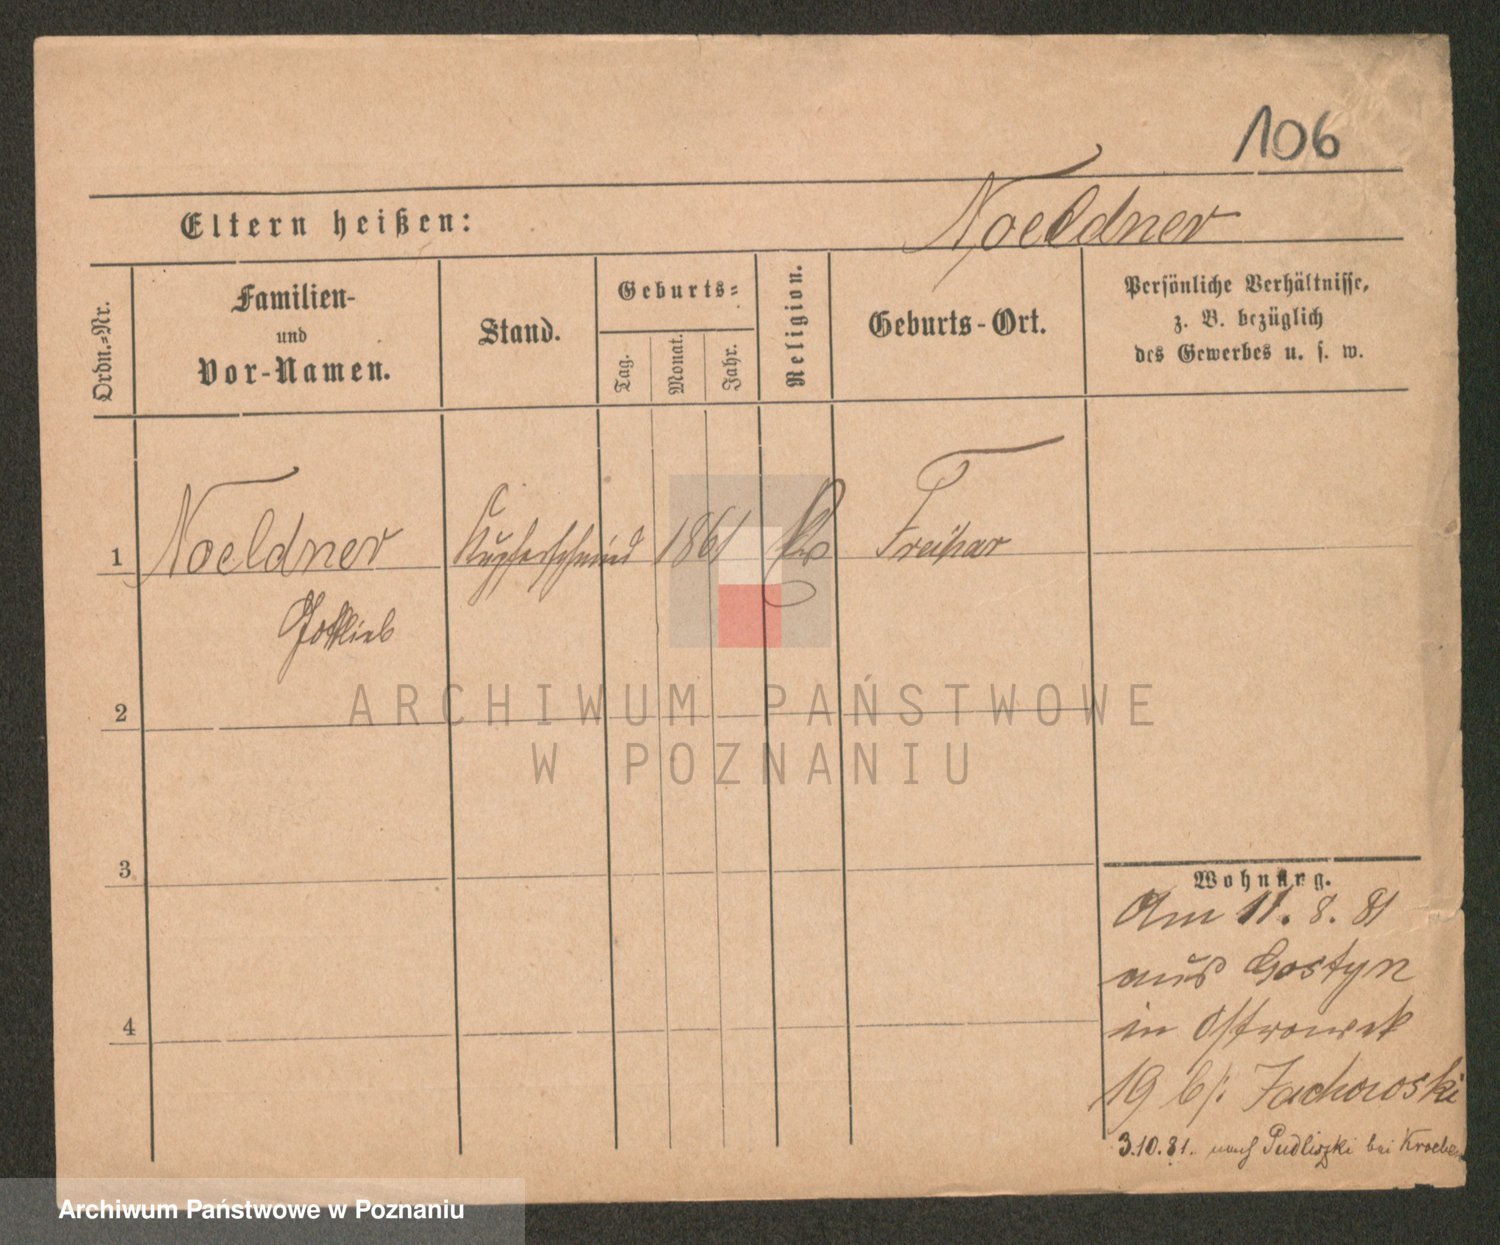 106
Eltern heißen:
Noeldner
Ordn.-Nr.
Familien-
und
Vor-Namen.
Stand.
Geburts-
Tag.
Monat.
Jahr.
Religion.
Geburts-Ort.
Persönliche Verhältnisse,
z. B. bezüglich
des Gewerbes u. s. w.
1
Noeldner
Kupferschmied
1861
Freihan
Gottlieb
2
ARCHIWUM PAŃSTWOWE
W POZNANIU
3
Wohnung.
Am 11. 8. 81
aus Gostyn
in Ostrowek
19 b/:
4
3.10.81. nach Pudliszki bei Kroeben
Archiwum Państwowe w Poznaniu